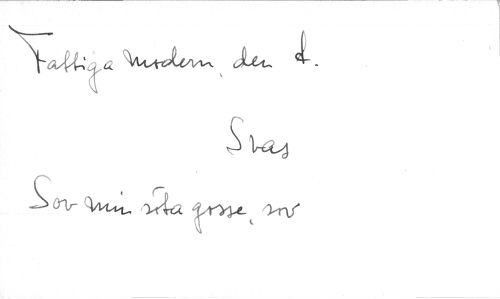 Fattiga modern, den t.
Svas
Sov min söta gosse, sov